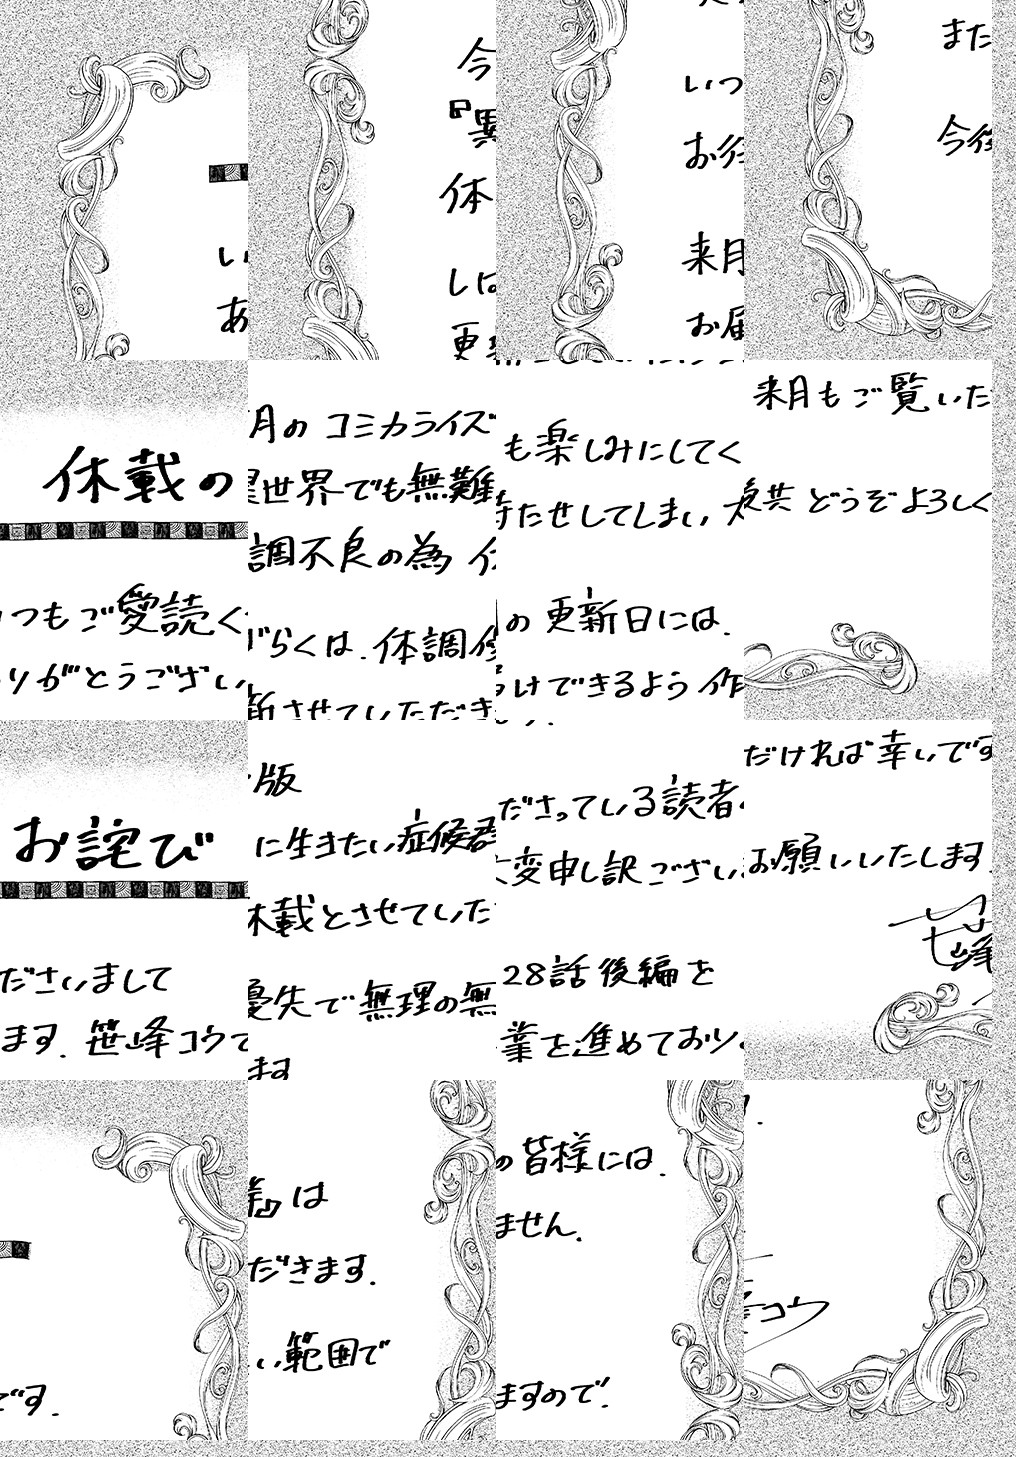 休載のお詫び
いつもご愛読くださいまして
ありがとうございます．笹峰コウです．
今月の コミカライズ版
『異世界でも無難に生きたい症候群』は
体調不良の為 休載とさせていただきます．
しばらくは．体調優先で無理の無い範囲で
更新させていただきます．
いつも楽しみにしてくださっている読者の皆様には．
お待たせしてしまい 大変申し訳ございません．
来月の 更新日には．28話後編を
お届けできるよう 作業を進めておりますので．
また来月もご覧いただければ幸いです．
今後共 どうぞよろしくお願いいたします．
笹峰コウ